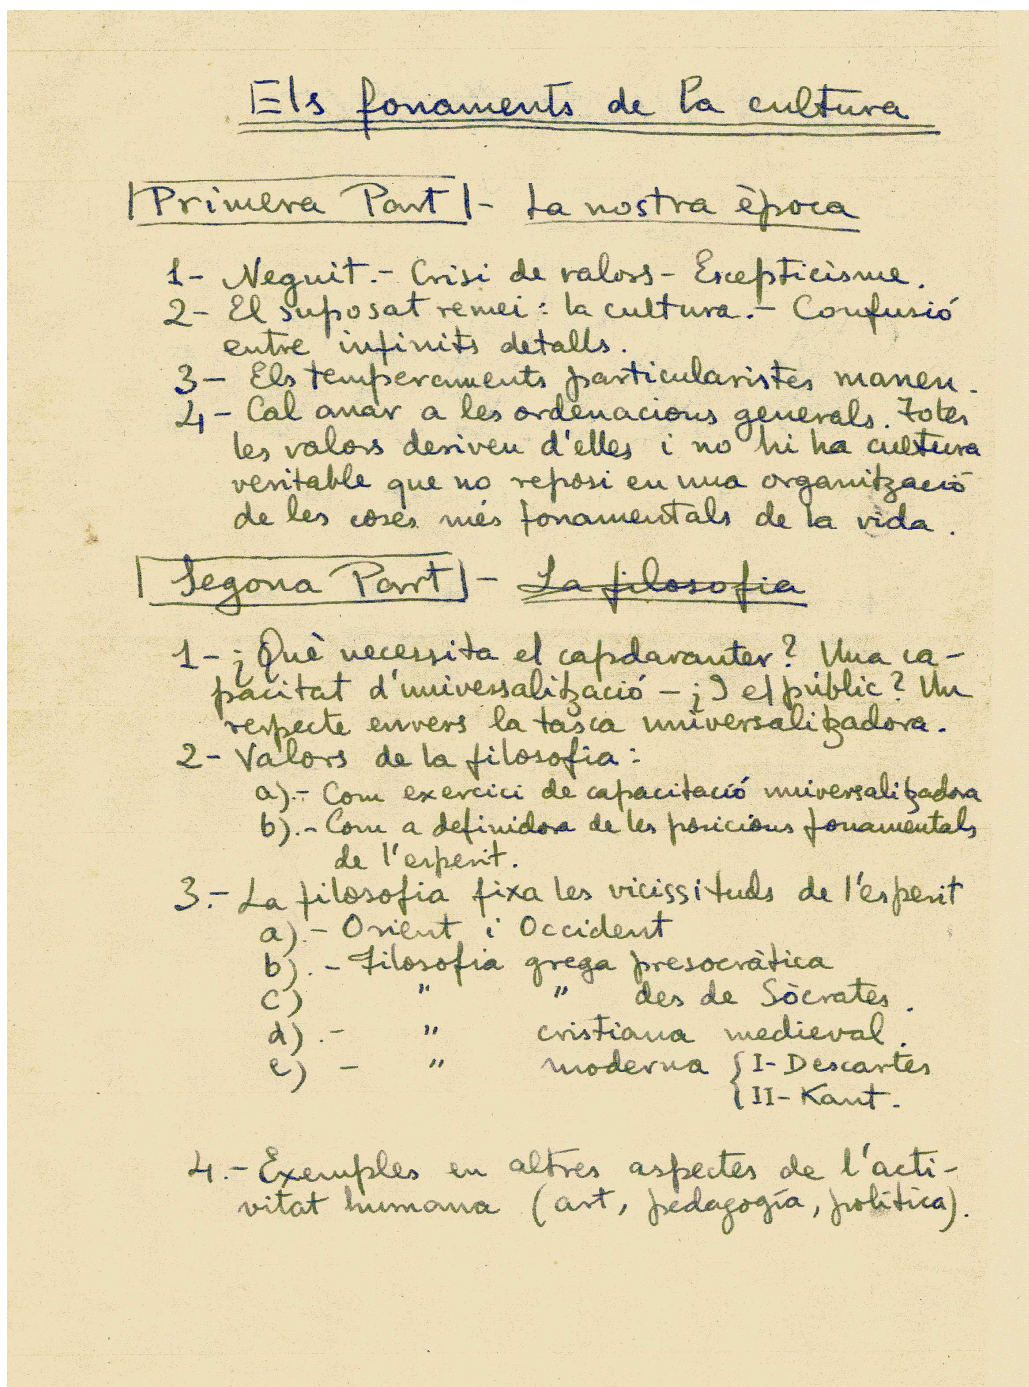 Els fonaments de la cultura
Primera Part - La nostra època
1- Neguit.- Crisi de valors- Escepticisme.
2- El suposat remei: la cultura.- Confusió
entre infinits detalls.
3- Els temperaments particularistes manen.
4- Cal anar a les ordenacions generals. Totes
les valors deriven d'elles i no hi ha cultura
veritable que no reposi en una organització
de les coses més fonamentals de la vida.
Segona Part - La filosofia
1- ¿Què necessita el capdavanter? Una ca-
pacitat d'universalització - ¿I el públic? Un
respecte envers la tasca universalitzadora.
2- Valors de la filosofia:
a).- Com exercici de capacitació universalitzadora
b).- Com a definidora de les posicions fonamentals
de l'esperit.
3.- La filosofia fixa les vicissituds de l'esperit
a).- Orient i Occident
b).- Filosofia grega presocràtica
c) " " des de Sòcrates.
d).- " cristiana medieval.
e) - " moderna { I- Descartes
{ II- Kant.
4.- Exemples en altres aspectes de l'acti-
vitat humana (art, pedagogía, política).